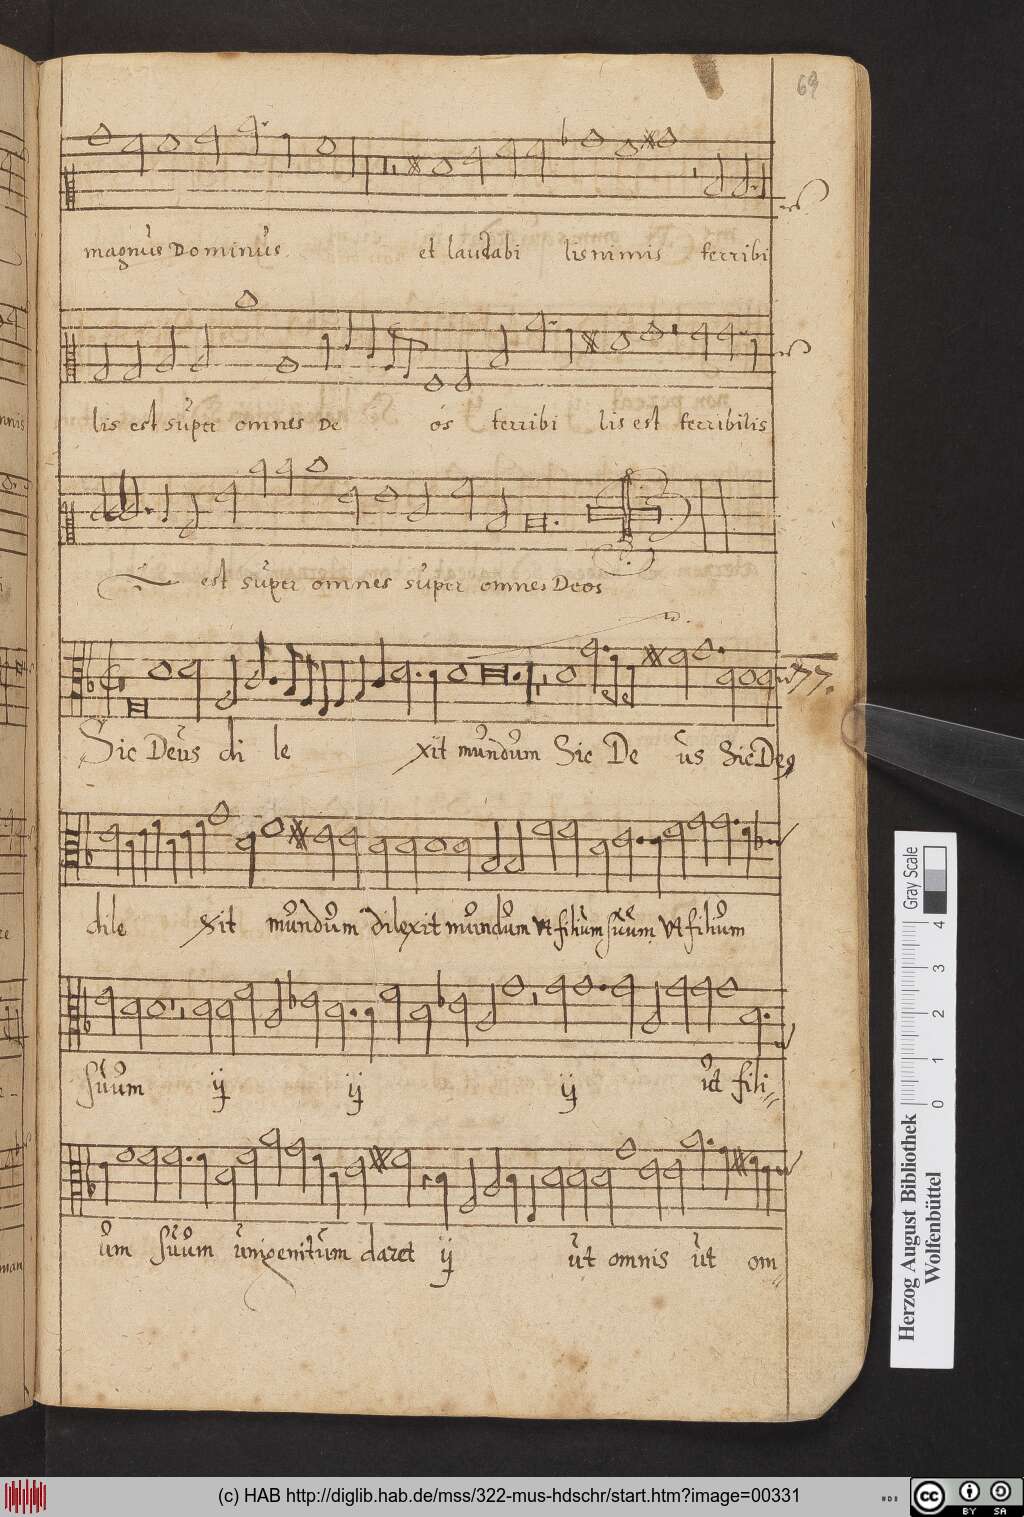 69
magnus Dominus et laudabi lis nimis terribi
lis est super omnes De os terribi lis est terribilis
est super omnes super omnes Deos
77.
Sic Deus di le xit mundum Sic De us Sic De9
dile xit mundum dilexit mundum vt filium suum vt filium
suum ij ij ij ut fili
um suum unigenitum daret ij ut omnis ut om
Gray Scale
4 3 2 1 0
Herzog August Bibliothek
Wolfenbüttel
(c) HAB http://diglib.hab.de/mss/322-mus-hdschr/start.htm?image=00331
cc BY SA